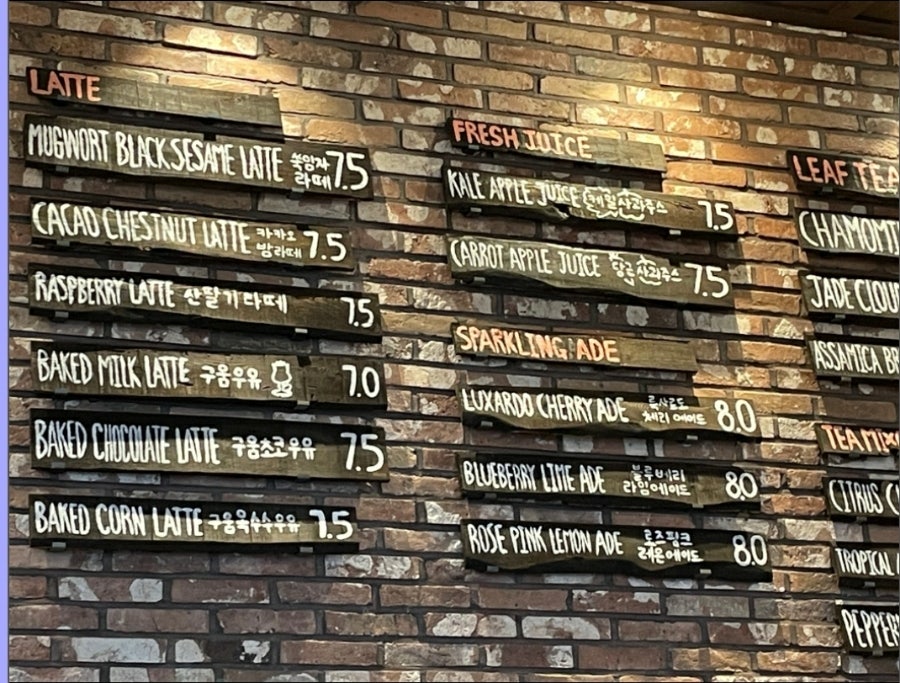 LATTE
MUGWORT BLACK.SESAME LATTE 쑥임자 라떼 7.5
CACAO CHESTNUT LATTE 카카오 밤라떼 7.5
RASPBERRY LATTE 산딸기라떼 7.5
BAKED MILK LATTE 구움우유 7.0
BAKED CHOCOLATE LATTE 구움초코우유 7.5
BAKED CORN LATTE 구움옥수수우유 7.5
FRESH JUICE
KALE APPLE JUICE 케일사과주스 7.5
CARROT APPLE JUICE 당근사과주스 7.5
SPARKLING ADE
LUXARDO CHERRY ADE 룩사르도 체리에이드 8.0
BLUEBERRY LIME ADE 블루베리 라임에이드 8.0
ROSE PINK LEMON ADE 로즈핑크 레몬에이드 8.0
LEAF TEA
CHAMOMI
JADE CLOU
ASSAMICA BR
TEA MIX
CITRUS
TROPICAL
PEPPER